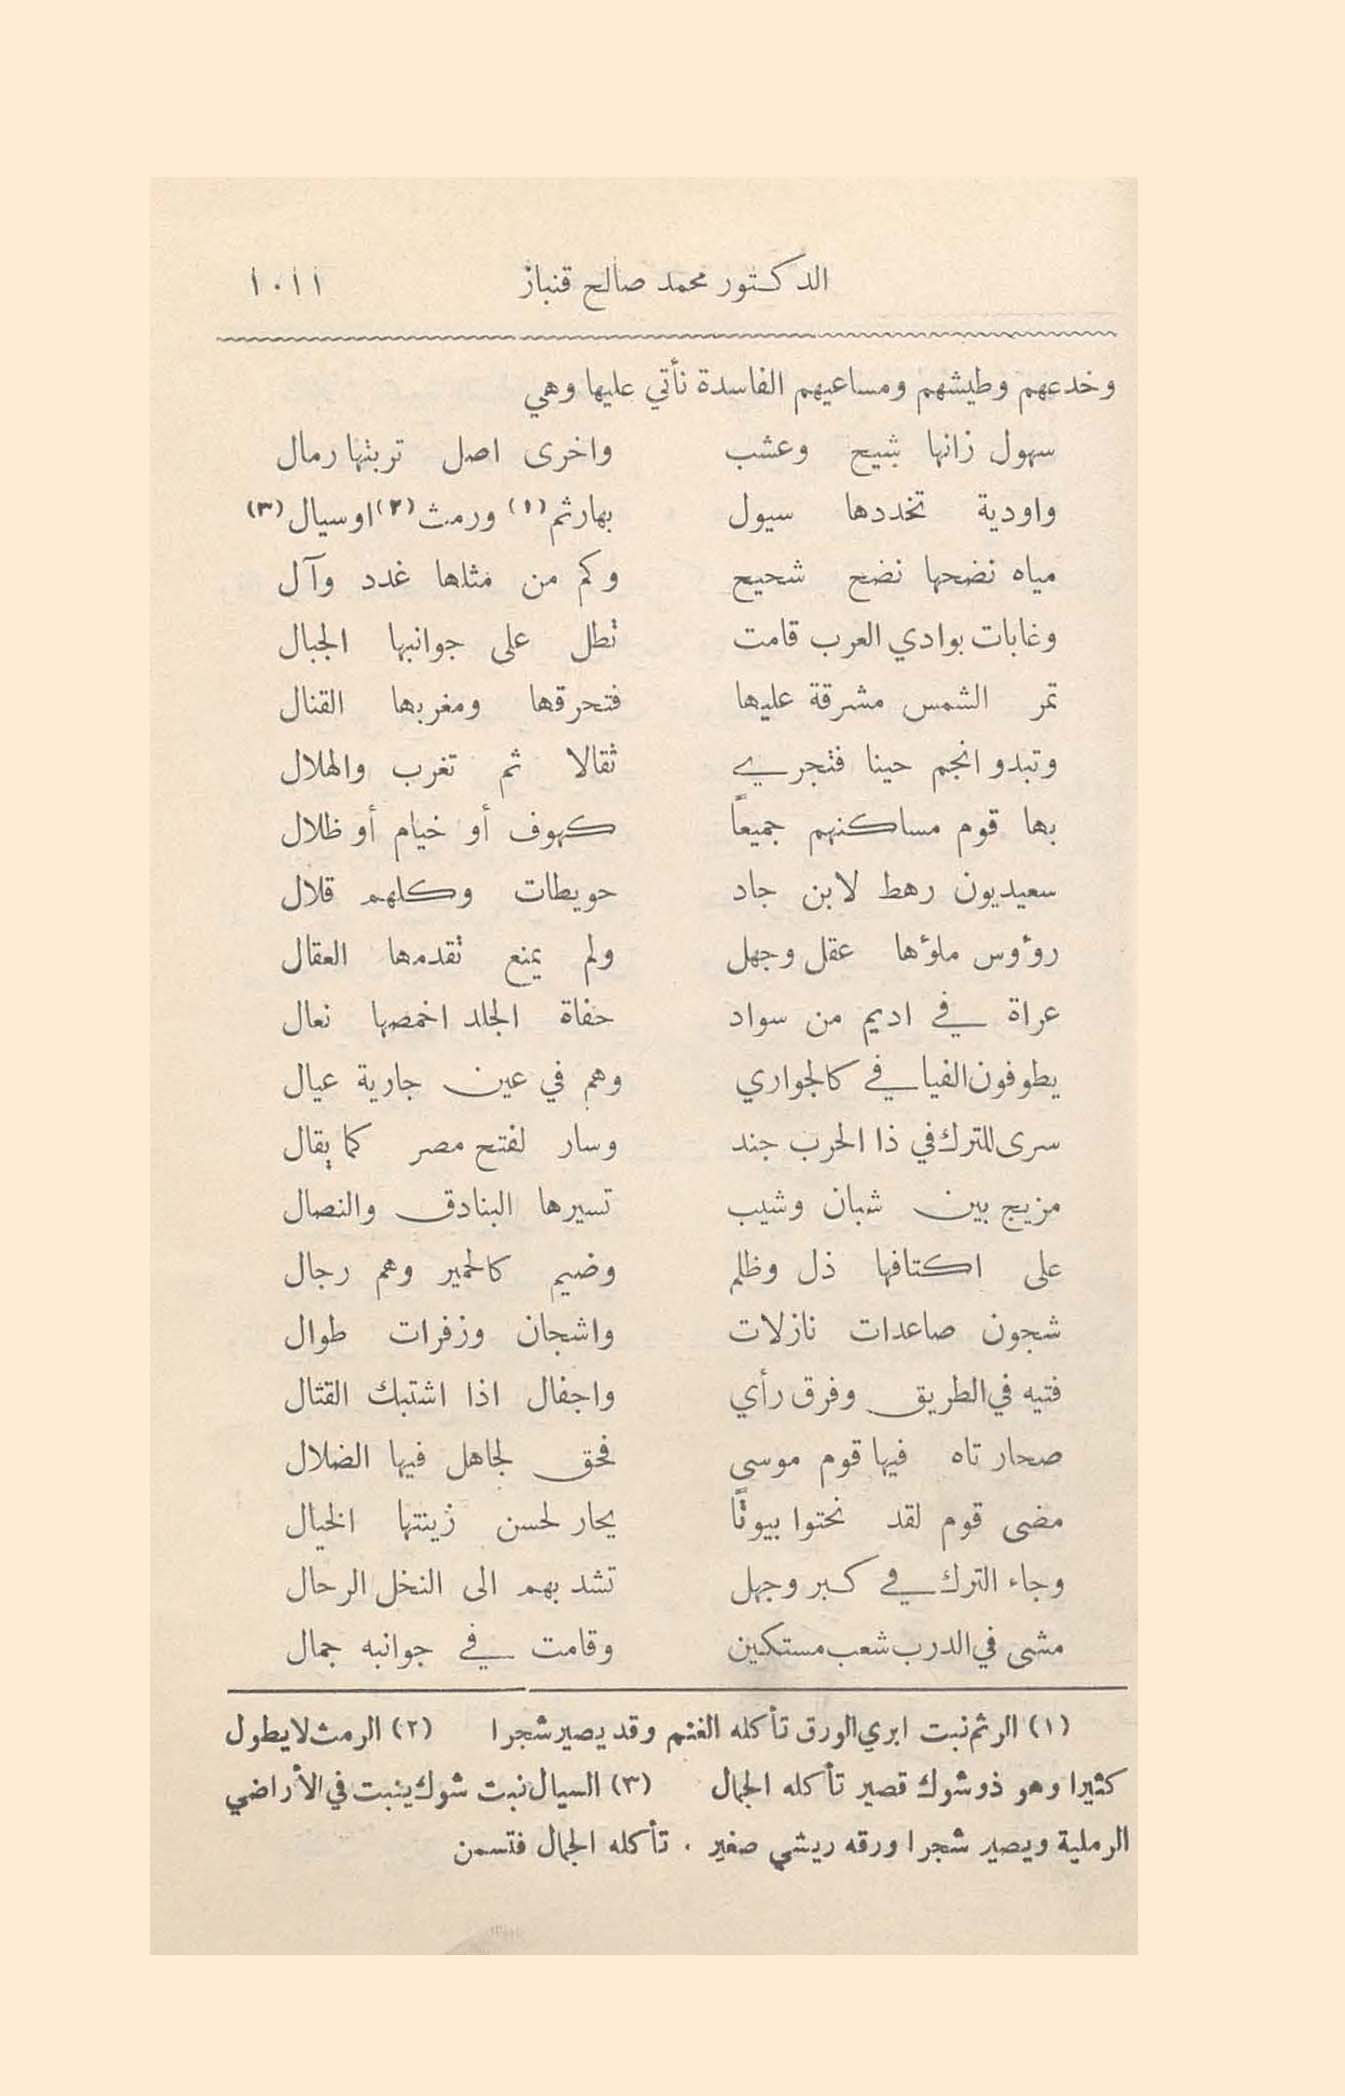 الدكتور محمد صالح قنباز ١٠١١
وخدعهم وطيشهم ومساعيهم الفاسدة نأتي عليها وهي
سهول زانها شيح وعشب واخرى اصل تربتها رمال
واودية تخددها سيول بهارثم (١) ورمث (٢) اوسيال (٣)
مياه نضحها نضح شحيح وكم من مثلها غدد وآل
وغابات بوادي العرب قامت تطل على جوانبها الجبال
تمر الشمس مشرقة عليها فتحرقها ومغربها القتال
وتبدو انجم حينا فتجري ثقالا ثم تغرب والهلال
بها قوم مساكنهم جميعاً كهوف أو خيام أو ظلال
سعيديون رهط لابن جاد حويطات وكلهم قلال
رؤوس ملؤها عقل وجهل ولم يمنع تقدمها العقال
عراة في اديم من سواد حفاة الجلد اخمصها نعال
يطوفون الفيافي كالجواري وهم في عين جارية عيال
سرى للترك في ذا الحرب جند وسار لفتح مصر كما يقال
مزيج بين شبان وشيب تسيرها البنادق والنصال
على اكتافها ذل وظلم وضيم كالحمير وهم رجال
شجون صاعدات نازلات واشجان وزفرات طوال
فتيه في الطريق وفرق رأي واجفال اذا اشتبك القتال
صحار تاه فيها قوم موسى فحق لجاهل فيها الضلال
مضى قوم لقد نحتوا بيوتاً يحار لحسن زينتها الخيال
وجاء الترك في كبر وجهل تشد بهم الى النخل الرحال
مشى في الدرب شعب مستكين وقامت في جوانبه جمال
(١) الرثم نبت ابري الورق تأكله الغنم وقد يصير شجرا (٢) الرمث لا يطول
كثيرا وهو ذو شوك قصير تأكله الجمال (٣) السيال نبت شوك ينبت في الأراضي
الرملية ويصير شجرا ورقه ريشي صغير . تأكله الجمال فتسمن